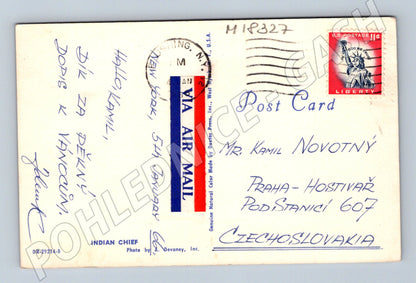 M 18327
NING, N.Y.
M
U.S. POSTAGE 11¢
LIBERTY
VIA AIR MAIL
Post Card
HALLO KAMIL.
DÍK ZA PĚKNÝ
DOPIS K VÁNOCŮM.
NEW YORK 5TH JANUARY 66
MR. KAMIL NOVOTNÝ
PRAHA - HOSTIVAŘ
POD STANICÍ 607
CZECHOSLOVAKIA
INDIAN CHIEF
Photo by J. Devaney, Inc.
Genuine Natural Color Made by Dexter Press, Inc. West Nyack, N.Y., U.S.A.
POHLEDNICE - CASH